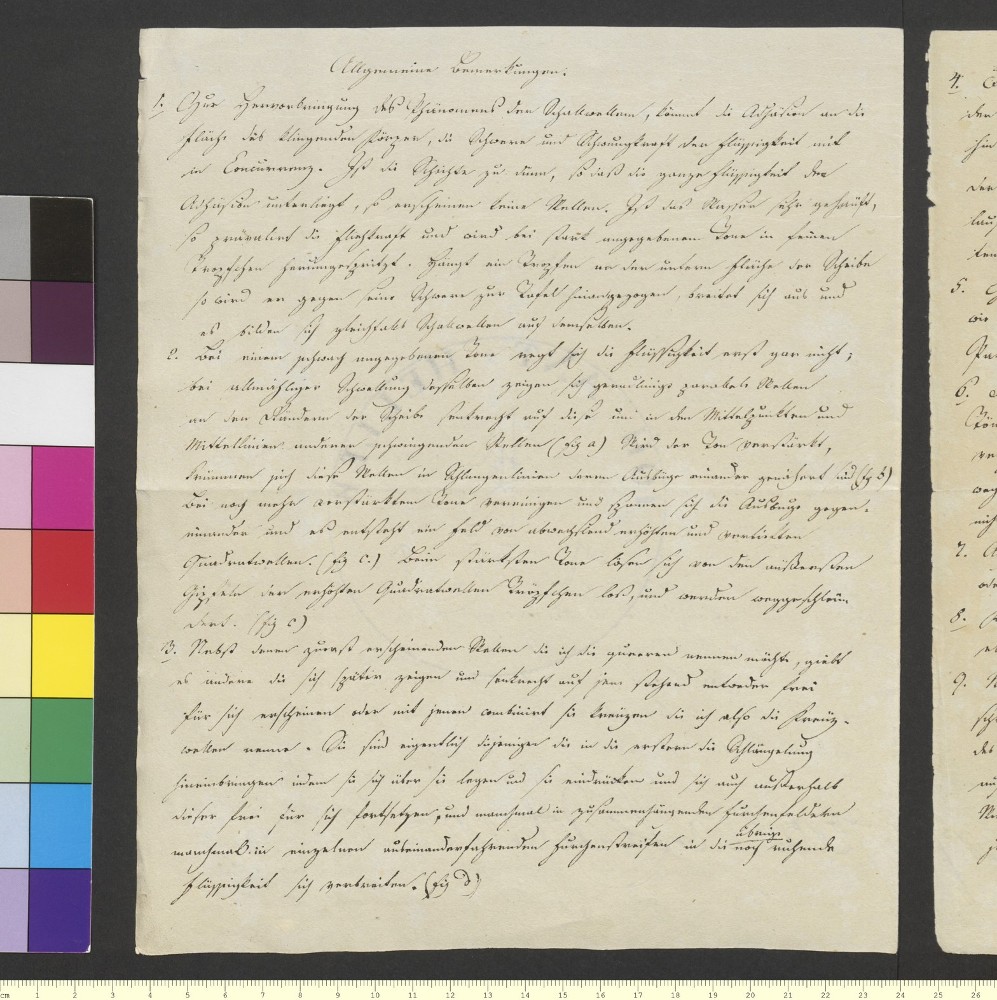 Allgemeine Bemerkungen.
1. Zur Hervorbringung des Phänomens der Schallwellen, kömmt die Adhäsion an die
Fläche des klingenden Körpers, die Schwere und Schwungkraft der Flüssigkeit mit
in Concurrenz. Ist die Schichte zu dünn, so daß die ganze Flüssigkeit der
Adhäsion unterliegt, so erscheinen keine Wellen. Ist das Wasser sehr gehäuft,
so prävalirt die Fliehkraft und wird bei stark angegebenem Tone in feinen
Tröpfchen herumgespritzt. Hängt ein Tropfen an der untern Fläche der Scheibe
so wird er gegen seine Schwere zur Tafel hinangezogen, breitet sich aus und
es bilden sich gleichfalls Schallwellen auf demselben.
2. Bei einem schwach angegebenen Tone regt sich die Flüssigkeit erst gar nicht;
bei allmähliger Schwellung desselben zeigen sich geradlinige parallele Wellen
an den Rändern der Scheibe senkrecht auf diese und in den Mittelpunkten und
Mittellinien anderer schwingenden Stellen (fig a) Wird der Ton verstärkt,
krümmen sich diese Wellen in Schlangenlinien deren Ausbüge einander genähert sind (fig b)
Bei noch mehr verstärktem Tone vereinigen und die Ausbüge gegen-
einander und es entsteht ein Feld von abwechslend erhöhten und vertieften
Quadratwellen. (fig c.) Beim stärksten Tone lösen sich von den äußersten
Gipfeln der erhöhten Quadratwellen Tröpfchen los, und werden weggeschleu-
dert. (fig c)
3. Nebst denen zuerst erscheinenden Wellen die ich die queeren nennen möchte, giebt
es andere die sich später zeigen und senkrecht auf jene stehend entweder frei
für sich erscheinen oder mit jenen combinirt sie kreuzen die ich also die Kreuz-
wellen nenne. Sie sind eigentlich diejenigen die in die erstern die Schlängelung
hineinbringen indem sie sich über sie legen und sie eindrücken und sich auch außerhalb
dieser frei für sich fortsetzen, und manchmal in zusammenhängenden Furchenfeldern
manchmal in einzelnen auseinanderfahrenden Furchenstreifen in die noch ruhende
übrige
Flüssigkeit sich verbreiten. (fig d)
4.
der
hin
5.
6.
7.
8.
9.